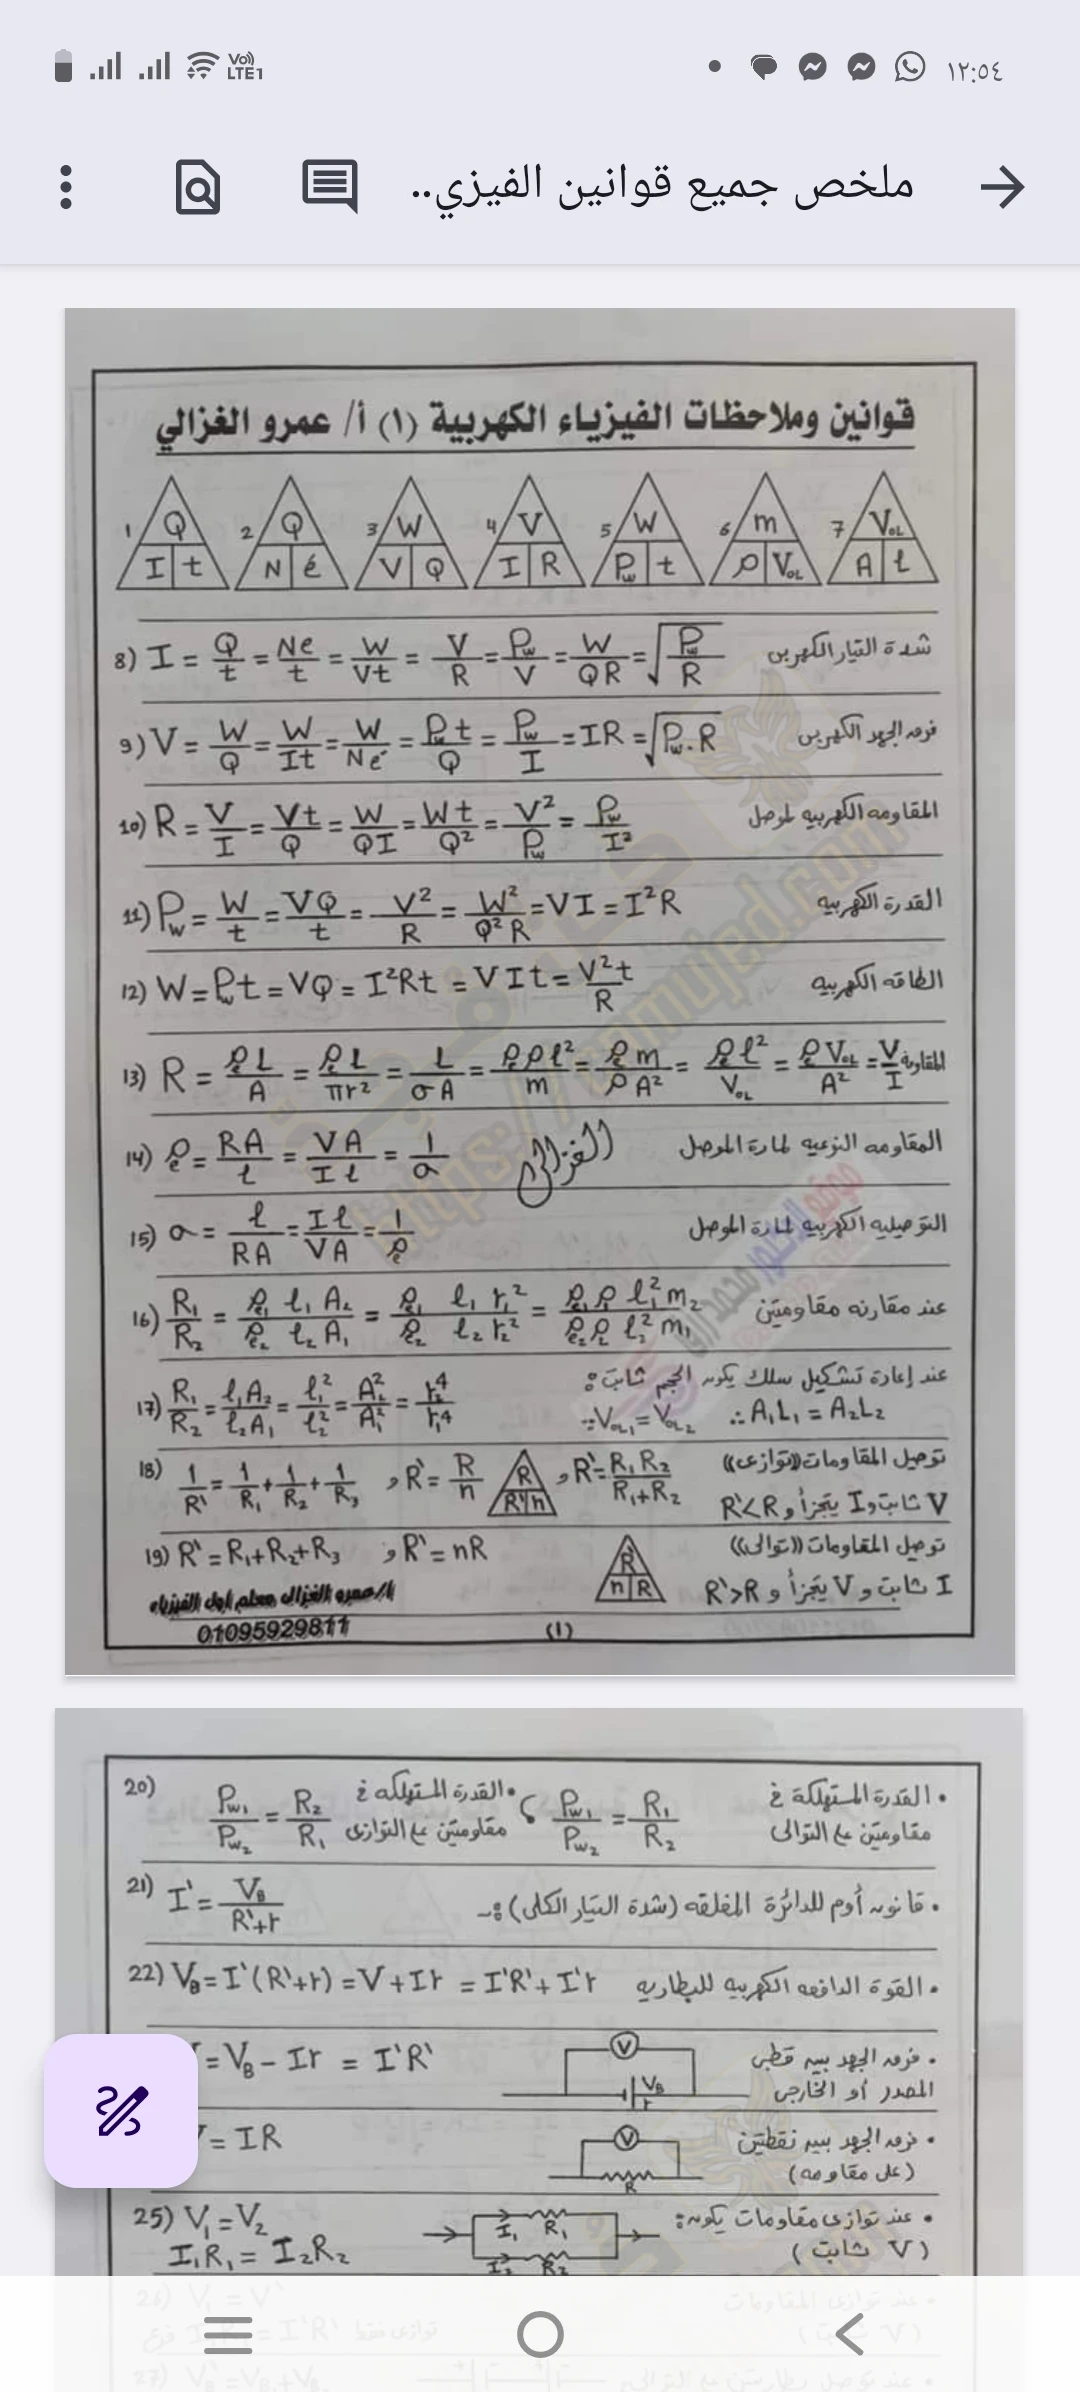 ١٢:٥٤
ملخص جميع قوانين الفيزي..
قوانين وملاحظات الفيزياء الكهربية (١) أ/ عمرو الغزالي
1 Q I t
2 Q N é
3 W V Q
4 V I R
5 W Pw t
6 m ρ VOL
7 VOL A l
8) I = Q/t = Ne/t = W/Vt = V/R = Pw/V = W/QR = √(Pw/R) شدة التيار الكهربى
9) V = W/Q = W/It = W/Ne⁻ = Pw t/Q = Pw/I = IR = √(Pw.R) فرق الجهد الكهربى
10) R = V/I = Vt/Q = W/QI = Wt/Q² = V²/Pw = Pw/I² المقاومه الكهربيه لموصل
11) Pw = W/t = VQ/t = V²/R = W²/Q²R = VI = I²R القدرة الكهربيه
12) W = Pw t = VQ = I²Rt = VIt = V²t/R الطاقه الكهربيه
13) R = ρe L/A = ρe L/πr² = L/σA = ρe ρ l²/m = ρe m/ρA² = ρe l²/VOL = ρe VOL/A² = V/I المقاومة
14) ρe = RA/l = VA/Il = 1/σ الغزالى المقاومه النوعيه لمادة الموصل
15) σ = l/RA = Il/VA = 1/ρe التوصيليه الكهربيه لمادة الموصل
16) R₁/R₂ = ρe₁ l₁ A₂/ρe₂ l₂ A₁ = ρe₁ l₁ r₁²/ρe₂ l₂ r₂² = ρe₁ρ₁ l₁² m₂/ρe₂ρ₂ l₂² m₁ عند مقارنه مقاومتين
عند إعادة تشكيل سلك يكون الحجم ثابت :
17) R₁/R₂ = l₁A₂/l₂A₁ = l₁²/l₂² = A₂²/A₁² = r₂⁴/r₁⁴ ∵ VOL₁ = VOL₂ ∴ A₁L₁ = A₂L₂
18) 1/R' = 1/R₁ + 1/R₂ + 1/R₃ و R' = R/n R R' n و R' = R₁R₂/R₁+R₂ توصيل المقاومات ((توازى))
V ثابت و I يتجزأ و R'<R
19) R' = R₁+R₂+R₃ و R' = nR R' n R توصيل المقاومات ((توالى))
I ثابت و V يتجزأ و R'>R
أ/عمرو الغزالى معلم أول الفيزياء
01095929811
(١)
20) Pw₁/Pw₂ = R₂/R₁ • القدرة المستهلكه فى
مقاومتين على التوازى
؟ Pw₁/Pw₂ = R₁/R₂ • القدرة المستهلكة فى
مقاومتين على التوالى
21) I' = VB/R'+r • قانون أوم للدائرة المغلقه (شدة التيار الكلى) :-
22) VB = I'(R'+r) = V+Ir = I'R'+I'r • القوة الدافعه الكهربيه للبطاريه
= VB - Ir = I'R' V VB r • فرق الجهد بين قطبى
المصدر أو الخارجى
= IR V R • فرق الجهد بين نقطتين
(على مقاومه)
25) V₁ = V₂ I₁ R₁ • عند توازى مقاومات يكون :
I₁R₁ = I₂R₂ I₂ R₂ (V ثابت)
26) V₁ = V' • عند توازى المقاومات
توازى فقط (V ثابت)
27) • عند توصيل بطاريتين على التوالى :